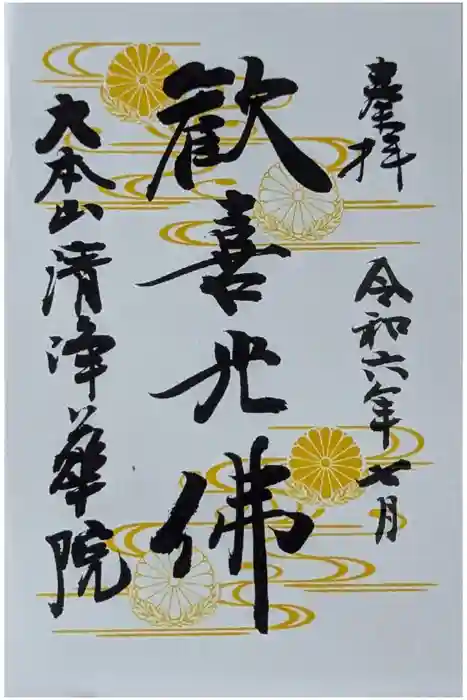 奉拝
令和六年七月
歓喜光佛
大本山清浄華院